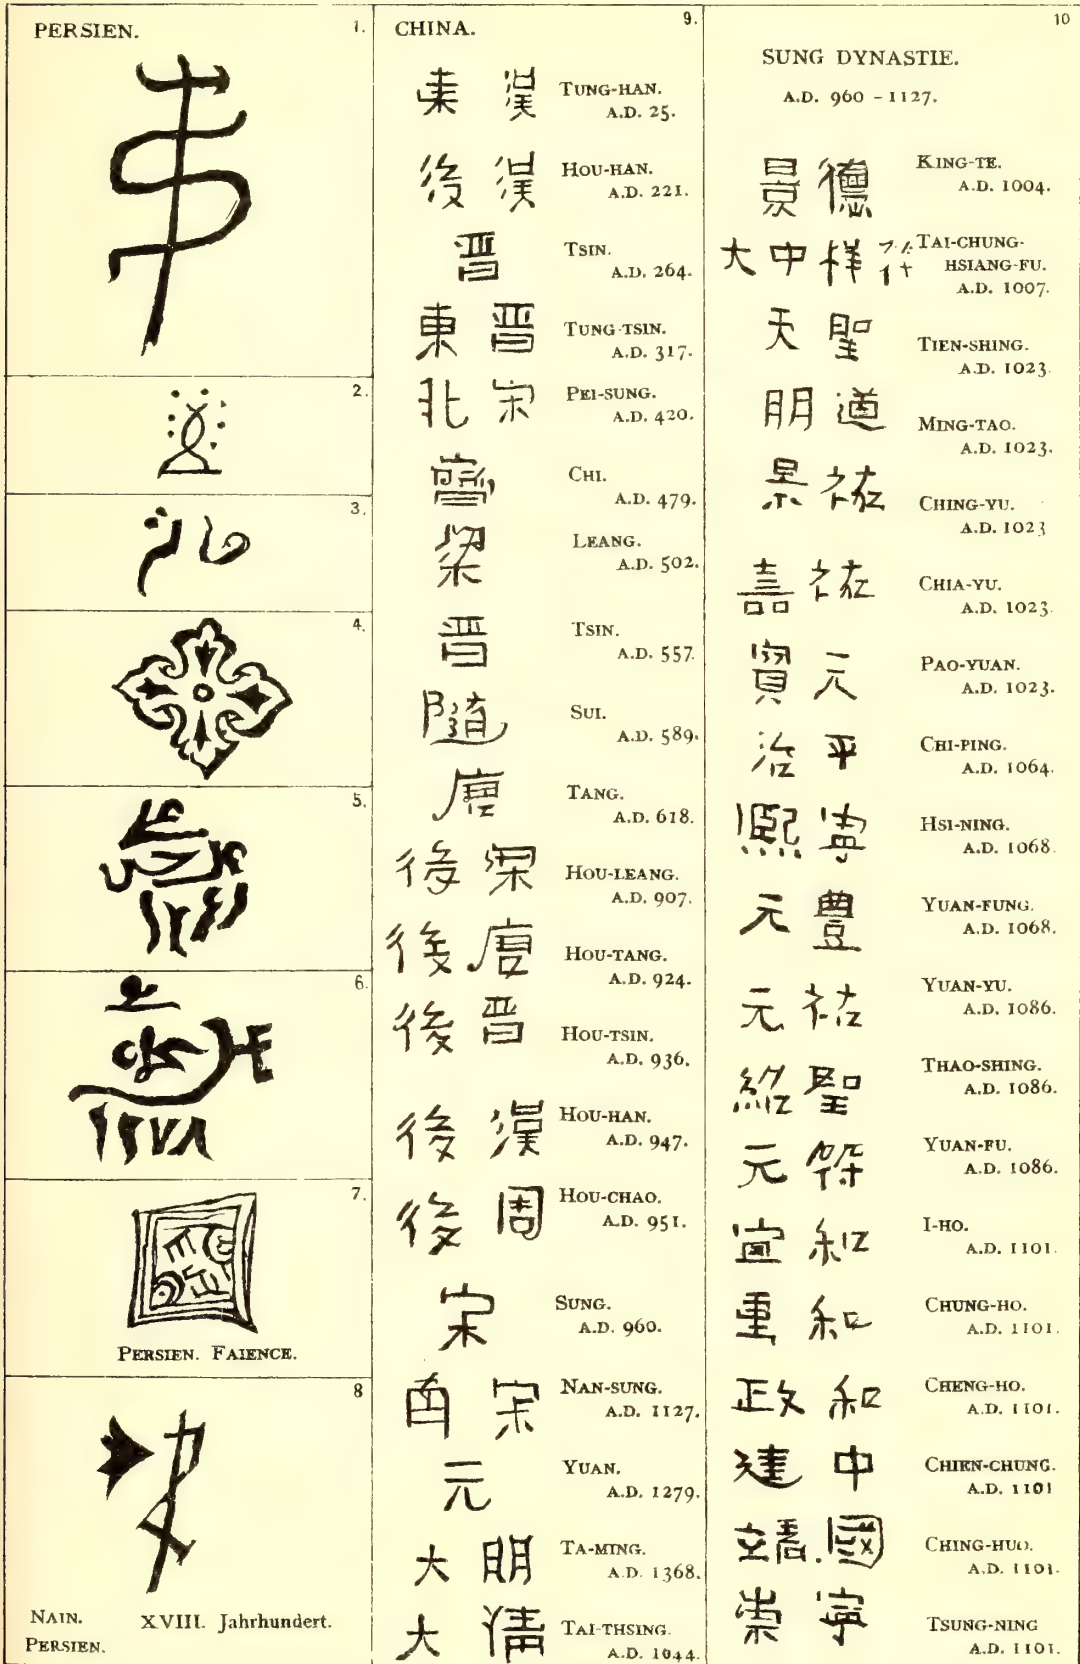 PERSIEN. 1.
2.
3.
4.
5.
6.
7.
PERSIEN. FAIENCE.
8
NAIN. XVIII. Jahrhundert.
PERSIEN.
CHINA. 9.
東 漢 TUNG-HAN.
A.D. 25.
後 漢 HOU-HAN.
A.D. 221.
晋 TSIN.
A.D. 264.
東 晋 TUNG-TSIN.
A.D. 317.
北 宋 PEI-SUNG.
A.D. 420.
齊 CHI.
A.D. 479.
梁 LEANG.
A.D. 502.
晋 TSIN.
A.D. 557.
隨 SUI.
A.D. 589.
唐 TANG.
A.D. 618.
後 梁 HOU-LEANG.
A.D. 907.
後 唐 HOU-TANG.
A.D. 924.
後 晋 HOU-TSIN.
A.D. 936.
後 漢 HOU-HAN.
A.D. 947.
後 周 HOU-CHAO.
A.D. 951.
宋 SUNG.
A.D. 960.
南 宋 NAN-SUNG.
A.D. 1127.
元 YUAN.
A.D. 1279.
大 明 TA-MING.
A.D. 1368.
大 清 TAI-THSING.
A.D. 1044.
10
SUNG DYNASTIE.
A.D. 960 - 1127.
景 德 KING-TE.
A.D. 1004.
大 中 祥 TAI-CHUNG-
HSIANG-FU.
A.D. 1007.
天 聖 TIEN-SHING.
A.D. 1023.
明 道 MING-TAO.
A.D. 1023.
景 祐 CHING-YU.
A.D. 1023
嘉 祐 CHIA-YU.
A.D. 1023.
寶 元 PAO-YUAN.
A.D. 1023.
治 平 CHI-PING.
A.D. 1064.
熙 寧 HSI-NING.
A.D. 1068.
元 豊 YUAN-FUNG.
A.D. 1068.
元 祐 YUAN-YU.
A.D. 1086.
紹 聖 THAO-SHING.
A.D. 1086.
元 符 YUAN-FU.
A.D. 1086.
宣 和 I-HO.
A.D. 1101.
重 和 CHUNG-HO.
A.D. 1101.
政 和 CHENG-HO.
A.D. 1101.
建 中 CHIEN-CHUNG.
A.D. 1101
靖 國 CHING-HUO.
A.D. 1101.
崇 寧 TSUNG-NING
A.D. 1101.